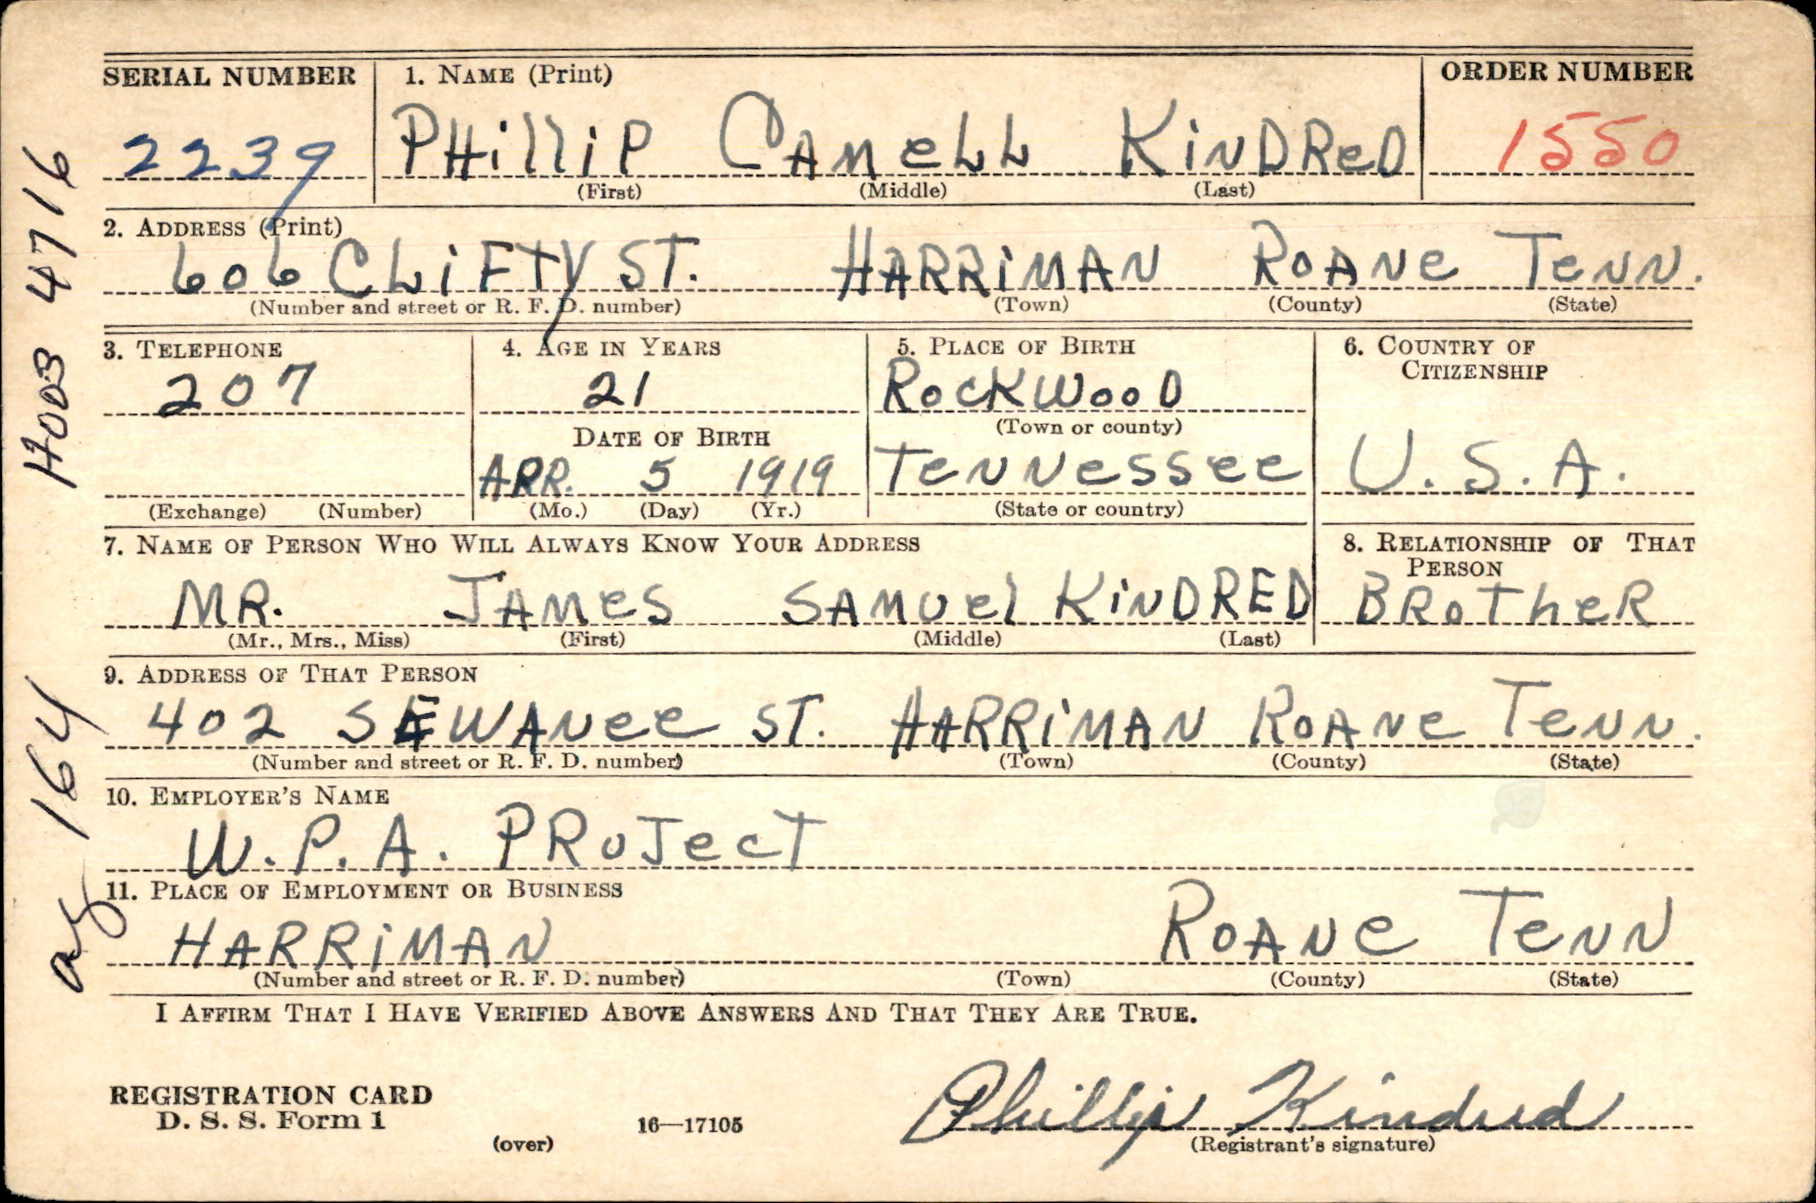 SERIAL NUMBER 1. NAME (Print) ORDER NUMBER
2239 PHilliP CAMeLL KiNDReD 1550
(First) (Middle) (Last)
2. ADDRESS (Print)
606 CLiFTy ST. HARRiMAN ROANe TeNN.
(Number and street or R. F. D. number) (Town) (County) (State)
3. TELEPHONE 4. AGE IN YEARS 5. PLACE OF BIRTH 6. COUNTRY OF CITIZENSHIP
207 21 RocKWooD
(Town or county)
DATE OF BIRTH
APR. 5 1919 TeNNessee U.S.A.
(Exchange) (Number) (Mo.) (Day) (Yr.) (State or country)
7. NAME OF PERSON WHO WILL ALWAYS KNOW YOUR ADDRESS 8. RELATIONSHIP OF THAT PERSON
MR. JAMes SAMUel KiNDRED BRoTheR
(Mr., Mrs., Miss) (First) (Middle) (Last)
9. ADDRESS OF THAT PERSON
402 SEWANee ST. HARRiMAN ROANe TeNN.
(Number and street or R. F. D. number) (Town) (County) (State)
10. EMPLOYER'S NAME
W.P.A. PRoJecT
11. PLACE OF EMPLOYMENT OR BUSINESS
HARRiMAN ROANe TeNN
(Number and street or R. F. D. number) (Town) (County) (State)
I AFFIRM THAT I HAVE VERIFIED ABOVE ANSWERS AND THAT THEY ARE TRUE.
REGISTRATION CARD
D. S. S. Form 1
(over) 16—17105
Phillip Kindred
(Registrant's signature)
164 H003 4716